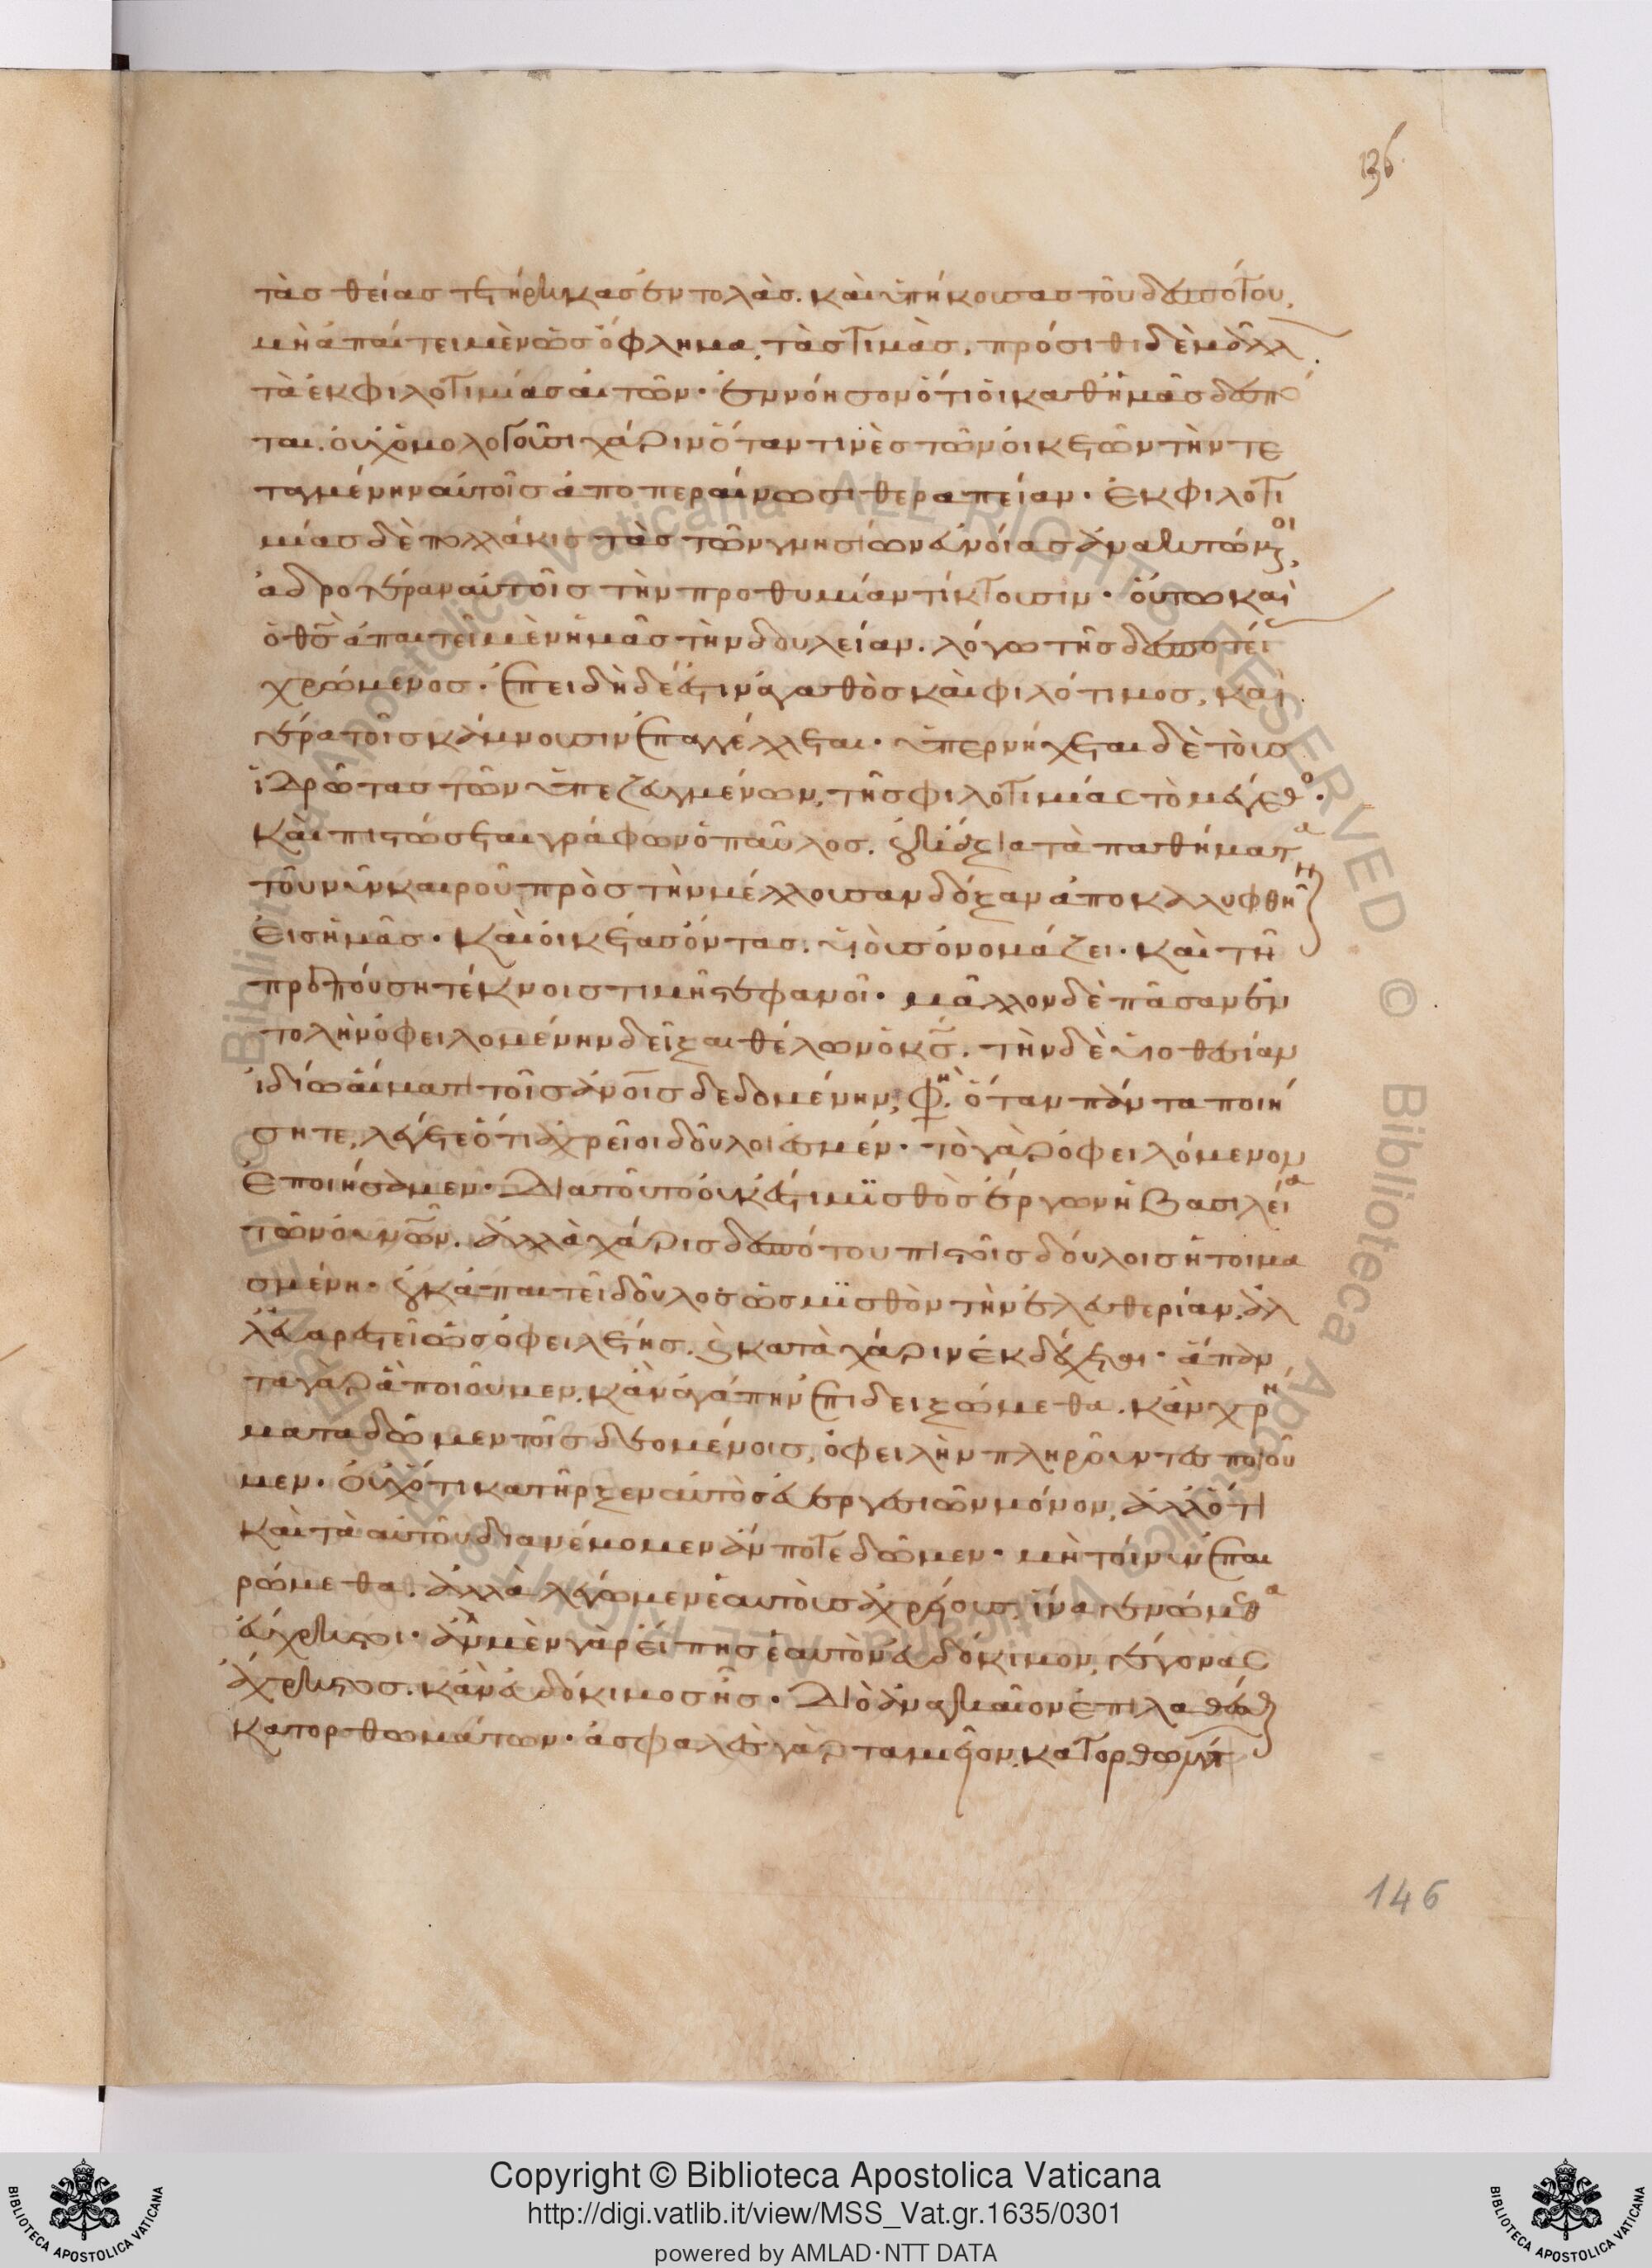 136
τὰς θείας τετήρηκας ἐντολὰς. καὶ ὑπήκουσας τοῦ δεσπότου,
μὴ ἀπαίτει μὲν ὡς ὄφλημα, τὰς τιμὰς. πρόσιθι δὲ μᾶλλ
τὰ ἐκ φιλοτιμίας αἰτῶν. ἐννόησον ὅτι οἱ καθ ἡμᾶς δεσπό
ται. οὐχ ὁμολογοῦσι χάριν ὅταν τινὲς τῶν οἰκετῶν τὴν τε
ταγμένην αὐτοῖς ἀποπεραίνωσι θεραπείαν. ἐκ φιλοτι
μίας δὲ πολλάκις τὰς τῶν γνησίων εὐνοίας ἀνακτώμενοι,
ἁδροτέραν αὐτοῖς τὴν προθυμίαν τίκτουσιν. οὕτω καὶ
ὁ θς ἀπαιτεῖ μὲν ἡμᾶς τὴν δουλείαν. λόγω τῆς δεσποτεί
χρώμενος. ἐπειδὴ δέ ἐστιν ἀγαθὸς καὶ φιλότιμος, καὶ
γέρα τοῖς κάμνουσιν ἐπαγγέλλεται. ὑπερνήχεται δὲ τοὺς
ἱδρῶτας τῶν ὑπεζευγμένων, τῆς φιλοτιμίας τὸ μέγεθος.
καὶ πιστώσεται γράφων ὁ παῦλος. οὐκ ἄξια τὰ παθήματα
τοῦ νῦν καιροῦ πρὸς τὴν μέλλουσαν δόξαν ἀποκαλυφθῆναι
εἰς ἡμᾶς. καὶ οἰκέτας ὄντας. υἱοὺς ὀνομάζει. καὶ τῆ
πρεπούση τέκνοις τιμῆ στεφανοῖ. μᾶλλον δὲ πᾶσαν ἐν
τολὴν ὀφειλομένην δεῖξαι θέλων ὁ κς. τὴν δὲ υἱοθεσίαν
ἰδίω αἵματι τοῖς ἀνοις δεδομένην, φη. ὅταν πάντα ποιή
σητε, λέγετε ὅτι ἀχρεῖοι δοῦλοι ἐσμέν. τὸ γὰρ ὀφειλόμενον
ἐποιήσαμεν. Διατοῦτο οὐκ ἔστι μισθὸς ἔργων ἡ βασιλεία
τῶν οὐνῶν. ἀλλὰ χάρις δεσπότου πιστοῖς δούλοις ἡτοιμα
σμένη. οὐκ ἀπαιτεῖ δοῦλος ὡς μισθὸν τὴν ἐλευθερίαν. ἀλ
λ εὐαρεστεῖ ὡς ὀφειλέτης. καὶ κατὰ χάριν ἐκδέχεται. ἅπαν
τα γὰρ ἃ ποιοῦμεν. κἂν ἀγάπην ἐπιδειξώμεθα. κἂν χρή
ματα δῶμεν τοῖς δεομένοις, ὀφειλὴν πληροῦντες ποιοῦ
μεν. οὐχ ὅτι κατῆρξεν αὐτὸς εὐεργεσιῶν μόνον, ἀλλ ὅτι
καὶ τὰ αὐτοῦ διανέμομεν ἄν ποτε δῶμεν. μὴ τοίνυν ἐπαι
ρώμεθα. ἀλλὰ λέγωμεν ἑαυτοὺς ἀχρείους, ἵνα γενώμεθα
εὔχρηστοι. ἂν μὲν γὰρ εἴπης ἑαυτὸν εὐδόκιμον, γέγονας
ἄχρηστος. κἂν εὐδόκιμος ἦς. Διὸ ἀναγκαῖον ἐπιλαθέσθαι
κατορθωμάτων. ἀσφαλὲς γὰρ ταμεῖον. κατορθωμάτ
146
Copyright © Biblioteca Apostolica Vaticana
http://digi.vatlib.it/view/MSS_Vat.gr.1635/0301
powered by AMLAD·NTT DATA
BIBLIOTECA APOSTOLICA VATICANA
BIBLIOTECA APOSTOLICA VATICANA